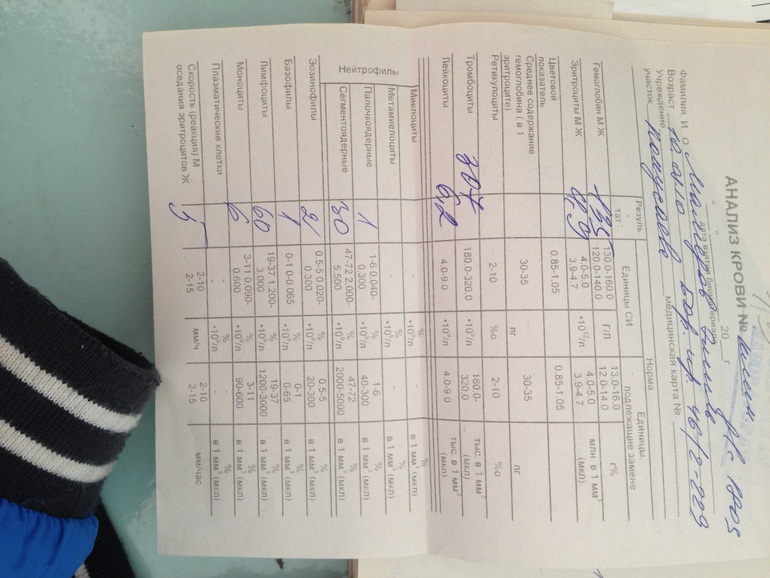 АНАЛИЗ КРОВИ №
20 г.
дата взятия биоматериала
Фамилия, И., О.
Возраст
Учреждение медицинская карта №
участок
Резуль-
тат
Норма
Единицы СИ
Единицы
подлежащие замене
Гемоглобин М Ж 130.0-160.0 120.0-140.0 Г/Л 13.0-16.0 12.0-14.0 г%
Эритроциты М Ж 4,9 4.0-5.0 3.9-4.7 •10¹²/л 4.0-5.0 3.9-4.7 млн. в 1 мм³ (мкл)
Цветовой показатель 0.85-1.05 0.85-1.05
Среднее содержание гемоглобина ( в 1 эритроците) 30-35 пг 30-35 пг
Ретикулоциты 2-10 %о 2-10 %о
Тромбоциты 307 180.0-320.0 •10⁹/л 180.0-320.0 тыс. в 1 мм³ (мкл)
Лейкоциты 6,2 4.0-9.0 •10⁹/л 4.0-9.0 тыс. в 1 мм³ (мкл)
Нейтрофилы
Миелоциты - % •10⁹/л - % в 1 мм³ (мкл)
Метамиелоциты - % •10⁹/л - % в 1 мм³ (мкл)
Палочкоядерные 1 1-6 0.040-0.300 % •10⁹/л 1-6 40-300 % в 1 мм³ (мкл)
Сегментоядерные 30 47-72 2.000-5.500 % •10⁹/л 47-72 2000-5000 % в 1 мм³ (мкл)
Эозинофилы 2 0.5-5 0.020-0.300 % •10⁹/л 0.5-5 20-300 % в 1 мм³ (мкл)
Базофилы 1 0-1 0-0.065 % •10⁹/л 0-1 0-65 % в 1 мм³ (мкл)
Лимфоциты 60 19-37 1.200-3.000 % •10⁹/л 19-37 1200-3000 % в 1 мм³ (мкл)
Моноциты 6 3-11 0.090-0.600 % •10⁹/л 3-11 90-600 % в 1 мм³ (мкл)
Плазматические клетки - % •10⁹/л - % в 1 мм³ (мкл)
Скорость (реакция) М оседания эритроцитов Ж 5 2-10 2-15 мм/ч 2-10 2-15 мм/час